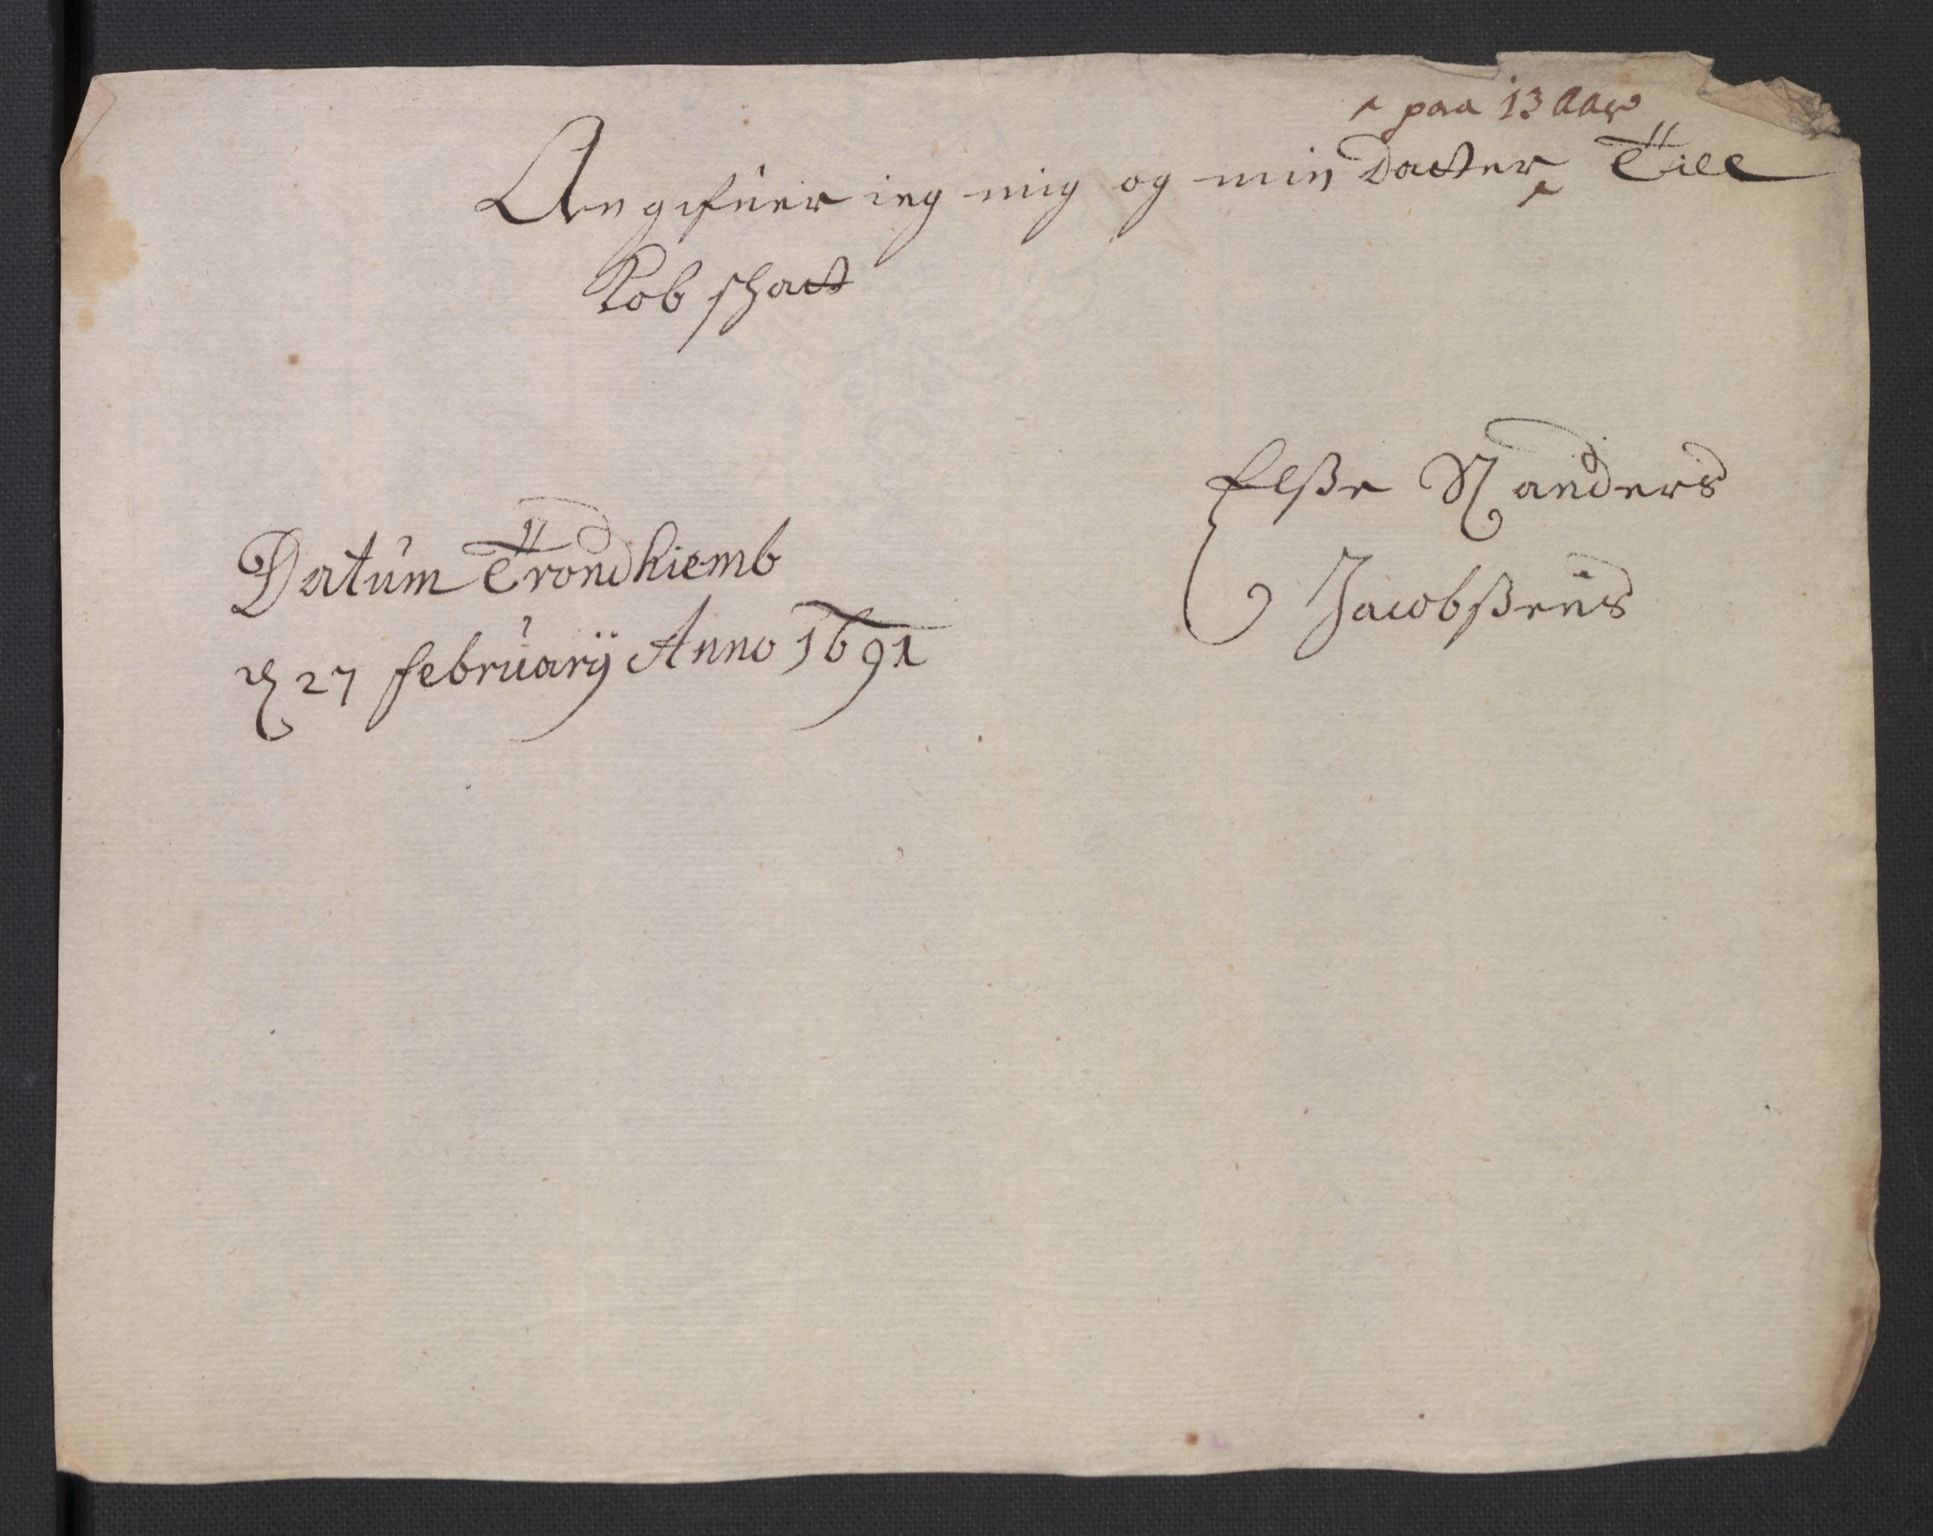 ^ paa 13 aar
Angifuer ieg mig og min Datter ^ Till
Kob schatt
Elße Sanders
Jacobßens
Datum Trondhiemb
27 februarij Anno 1691